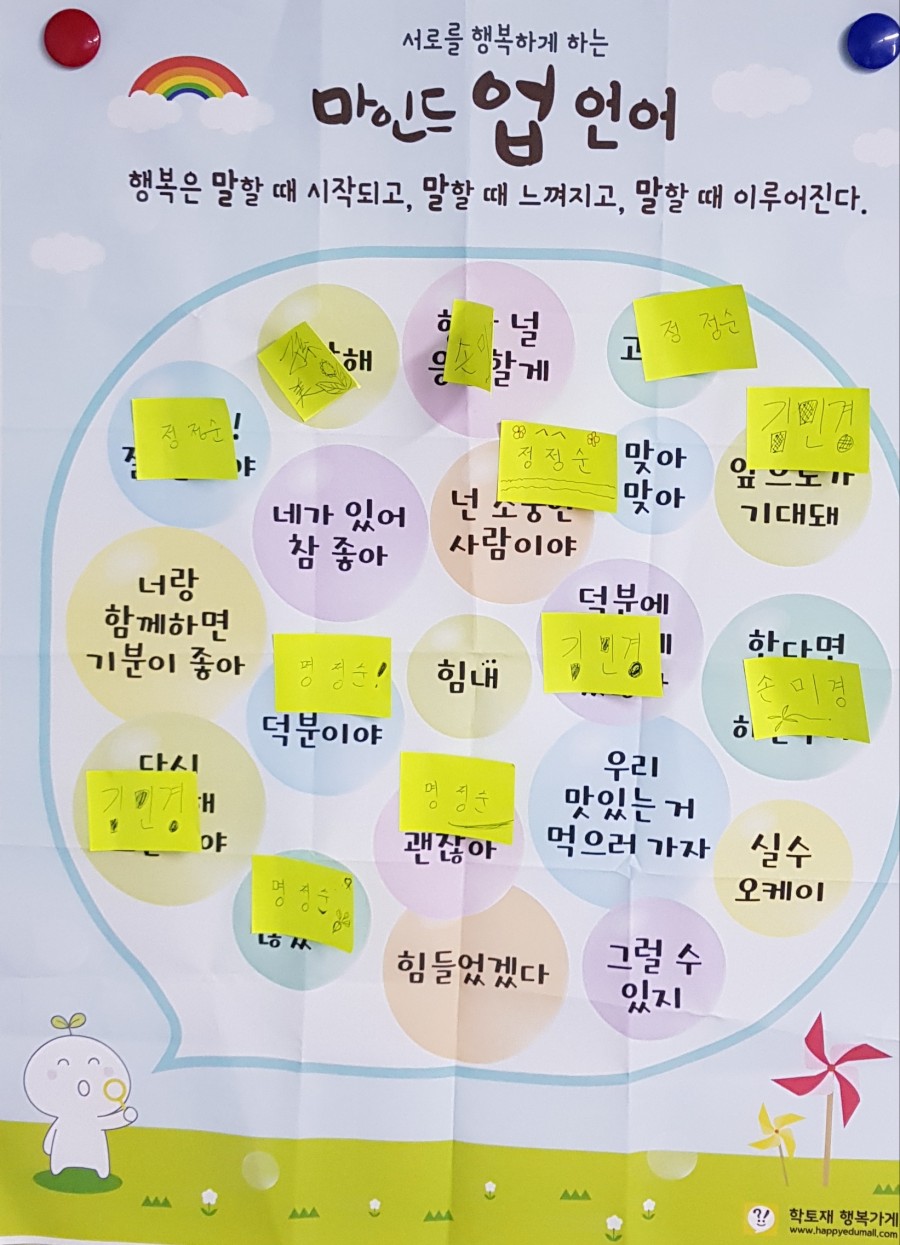 서로를 행복하게 하는
마인드 업 언어
행복은 말할 때 시작되고, 말할 때 느껴지고, 말할 때 이루어진다.
해
널
할게
고
정 정순
정 정순
!
야
김민경
앞으로가
기대돼
정 정순
넌 소중한
사람이야
맞아
맞아
네가 있어
참 좋아
너랑
함께하면
기분이 좋아
명 정순!
덕분이야
힘내
덕분에
김민경
한다면
손 미경
다시
김민경
해
야
명 정순
괜찮아
우리
맛있는 거
먹으러 가자
실수
오케이
명 정순
힘들었겠다
그럴 수
있지
?!
학토재 행복가게
www.happyedumall.com